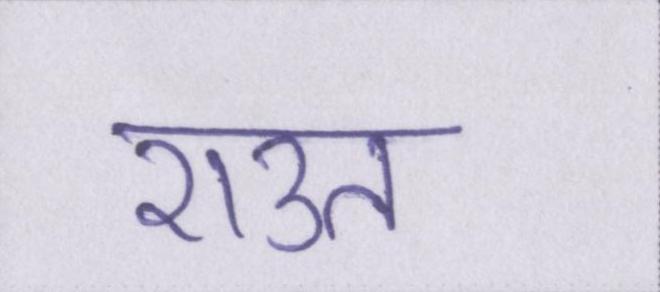 राउत